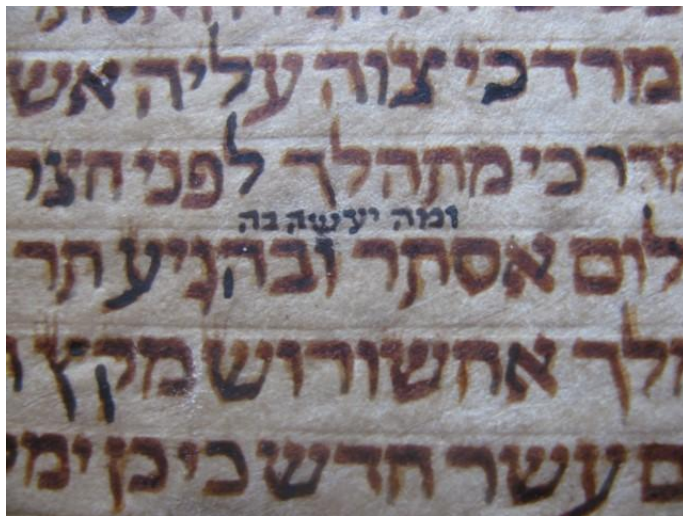 מרדכי צוה עליה אש
מרדכי מתהלך לפני חצר
ומה יעשה בה
לום אסתר ובהגיע תר
מלך אחשורוש מקץ
ם עשר חדש כי כן ימ